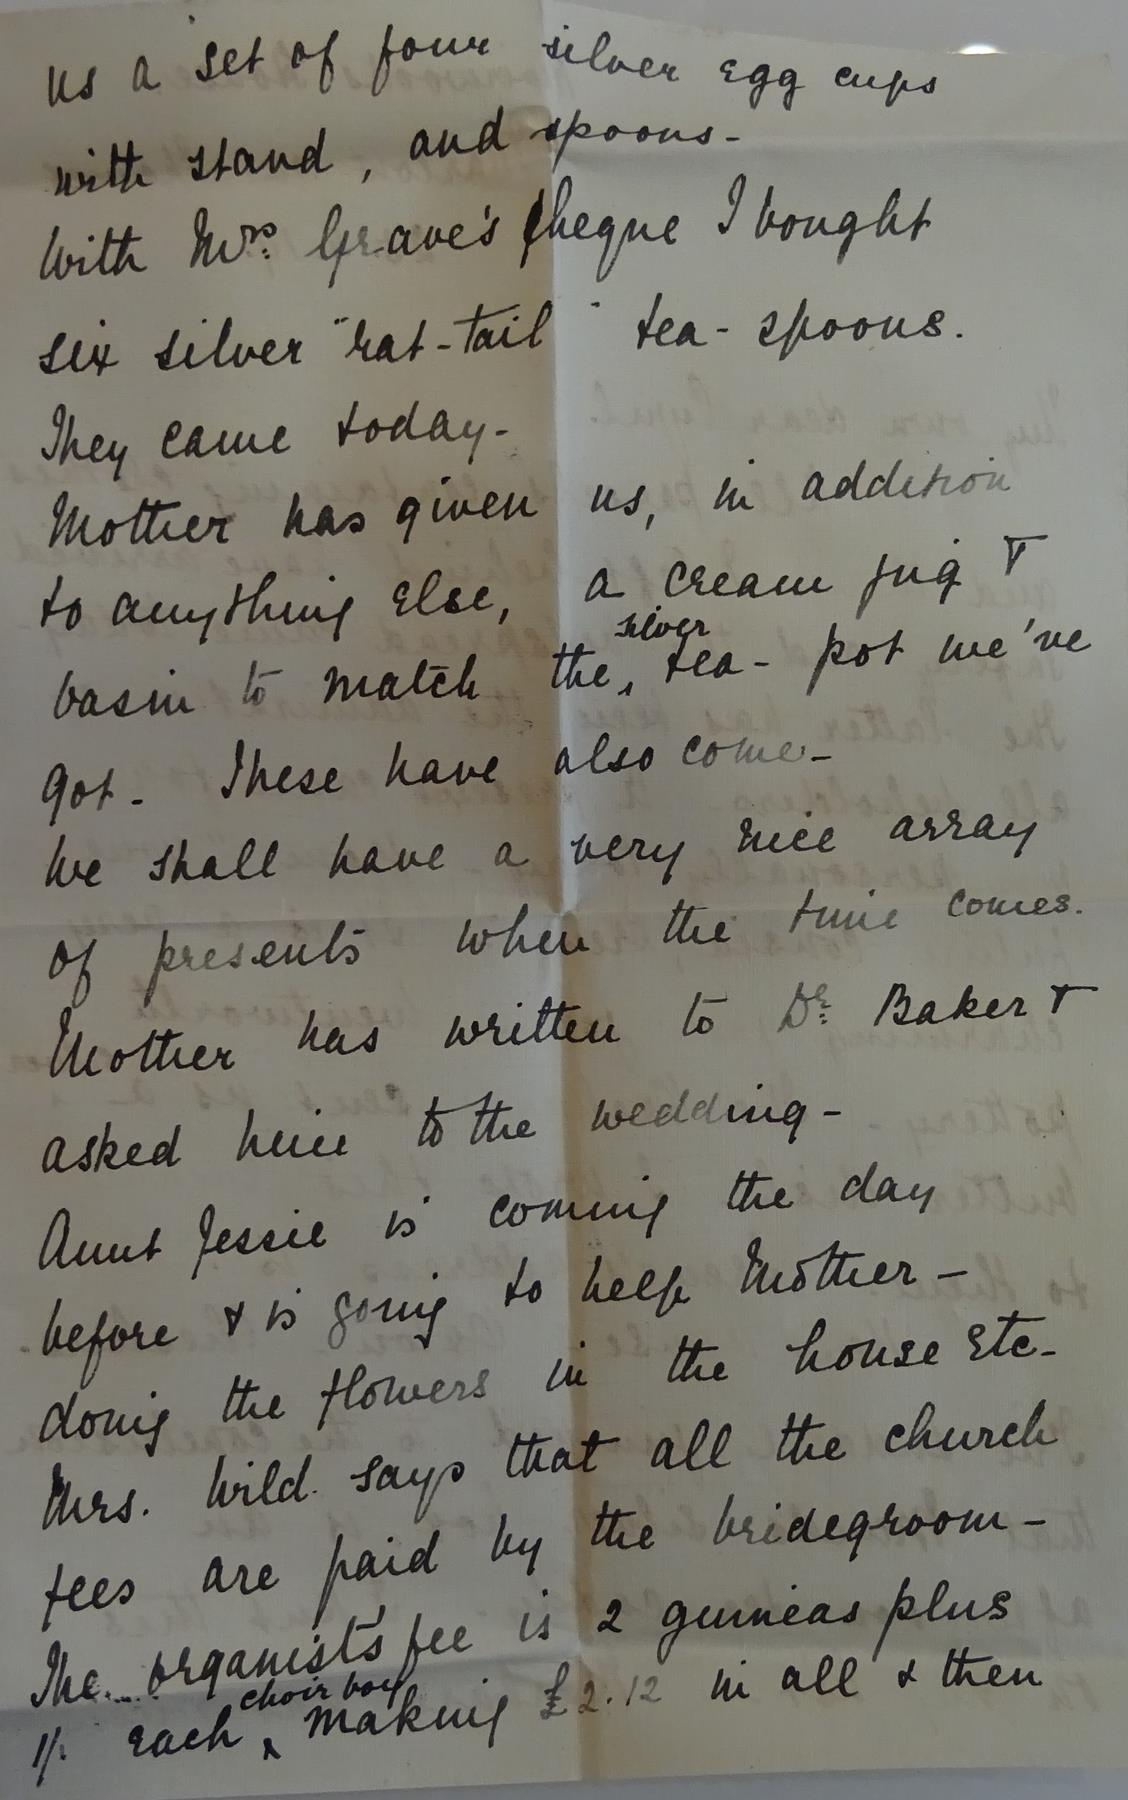 us a set of four silver egg cups
with stand, and spoons -
With Mrs. Grave's cheque I bought
six silver "rat-tail" tea-spoons.
They came today -
Mother has given us, in addition
to anything else, a cream jug &
silver
basin to match the tea-pot we've
got - These have also come -
We shall have a very nice array
of presents when the time comes.
Mother has written to Dr. Baker &
asked him to the wedding -
Aunt Jessie is coming the day
before & is going to help Mother -
doing the flowers in the house etc -
Mrs. Wild says that all the church
fees are paid by the bridegroom -
The organist's fee is 2 guineas plus
choir boy
1/- each making £2.12 in all & then